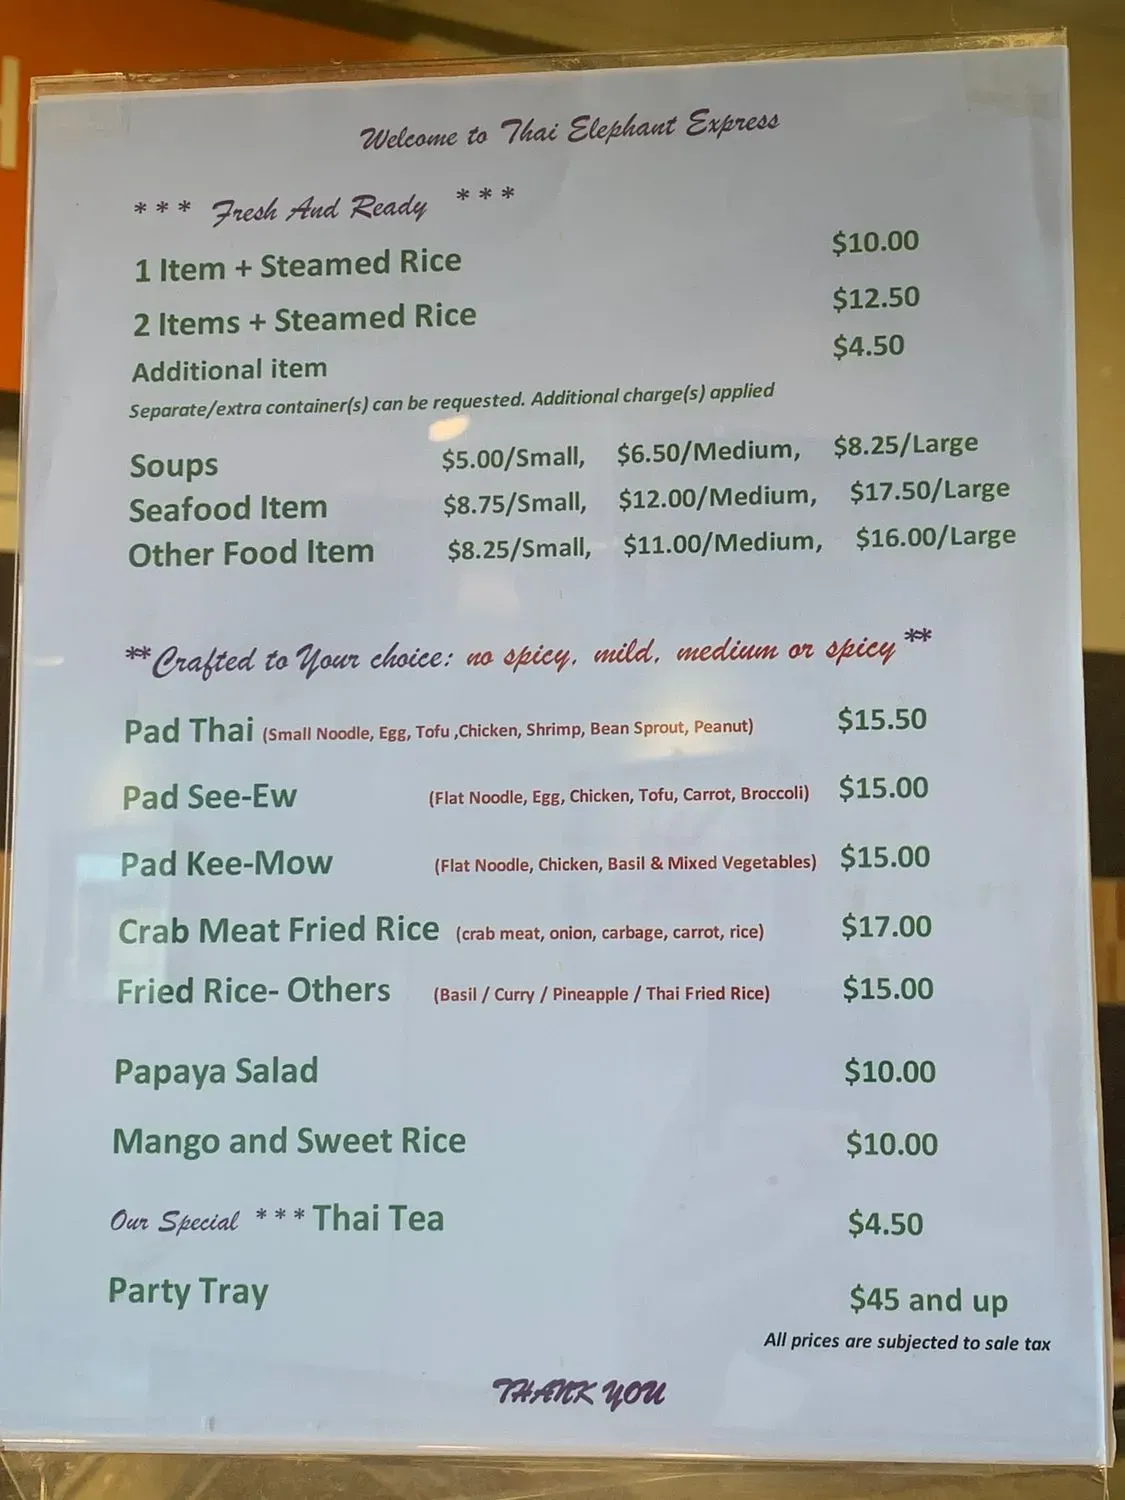 H
Welcome to Thai Elephant Express
*** Fresh And Ready ***
1 Item + Steamed Rice $10.00
2 Items + Steamed Rice $12.50
Additional item $4.50
Separate/extra container(s) can be requested. Additional charge(s) applied
Soups $5.00/Small, $6.50/Medium, $8.25/Large
Seafood Item $8.75/Small, $12.00/Medium, $17.50/Large
Other Food Item $8.25/Small, $11.00/Medium, $16.00/Large
**Crafted to Your choice: no spicy, mild, medium or spicy**
Pad Thai (Small Noodle, Egg, Tofu ,Chicken, Shrimp, Bean Sprout, Peanut) $15.50
Pad See-Ew (Flat Noodle, Egg, Chicken, Tofu, Carrot, Broccoli) $15.00
Pad Kee-Mow (Flat Noodle, Chicken, Basil & Mixed Vegetables) $15.00
Crab Meat Fried Rice (crab meat, onion, carbage, carrot, rice) $17.00
Fried Rice- Others (Basil / Curry / Pineapple / Thai Fried Rice) $15.00
Papaya Salad $10.00
Mango and Sweet Rice $10.00
Our Special *** Thai Tea $4.50
Party Tray $45 and up
All prices are subjected to sale tax
THANK YOU